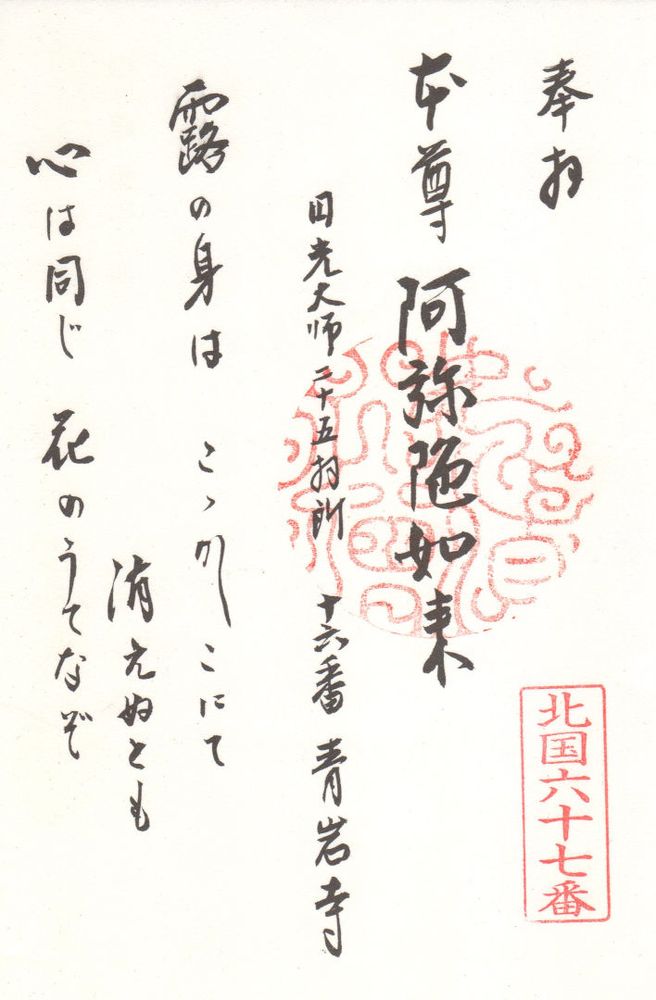 奉拝
本尊 阿弥陀如来
円光大師二十五拝所 十六番 青岩寺
露の身は こゝかしこにて
消えぬとも
心は同じ 花のうてなぞ
北国六十七番